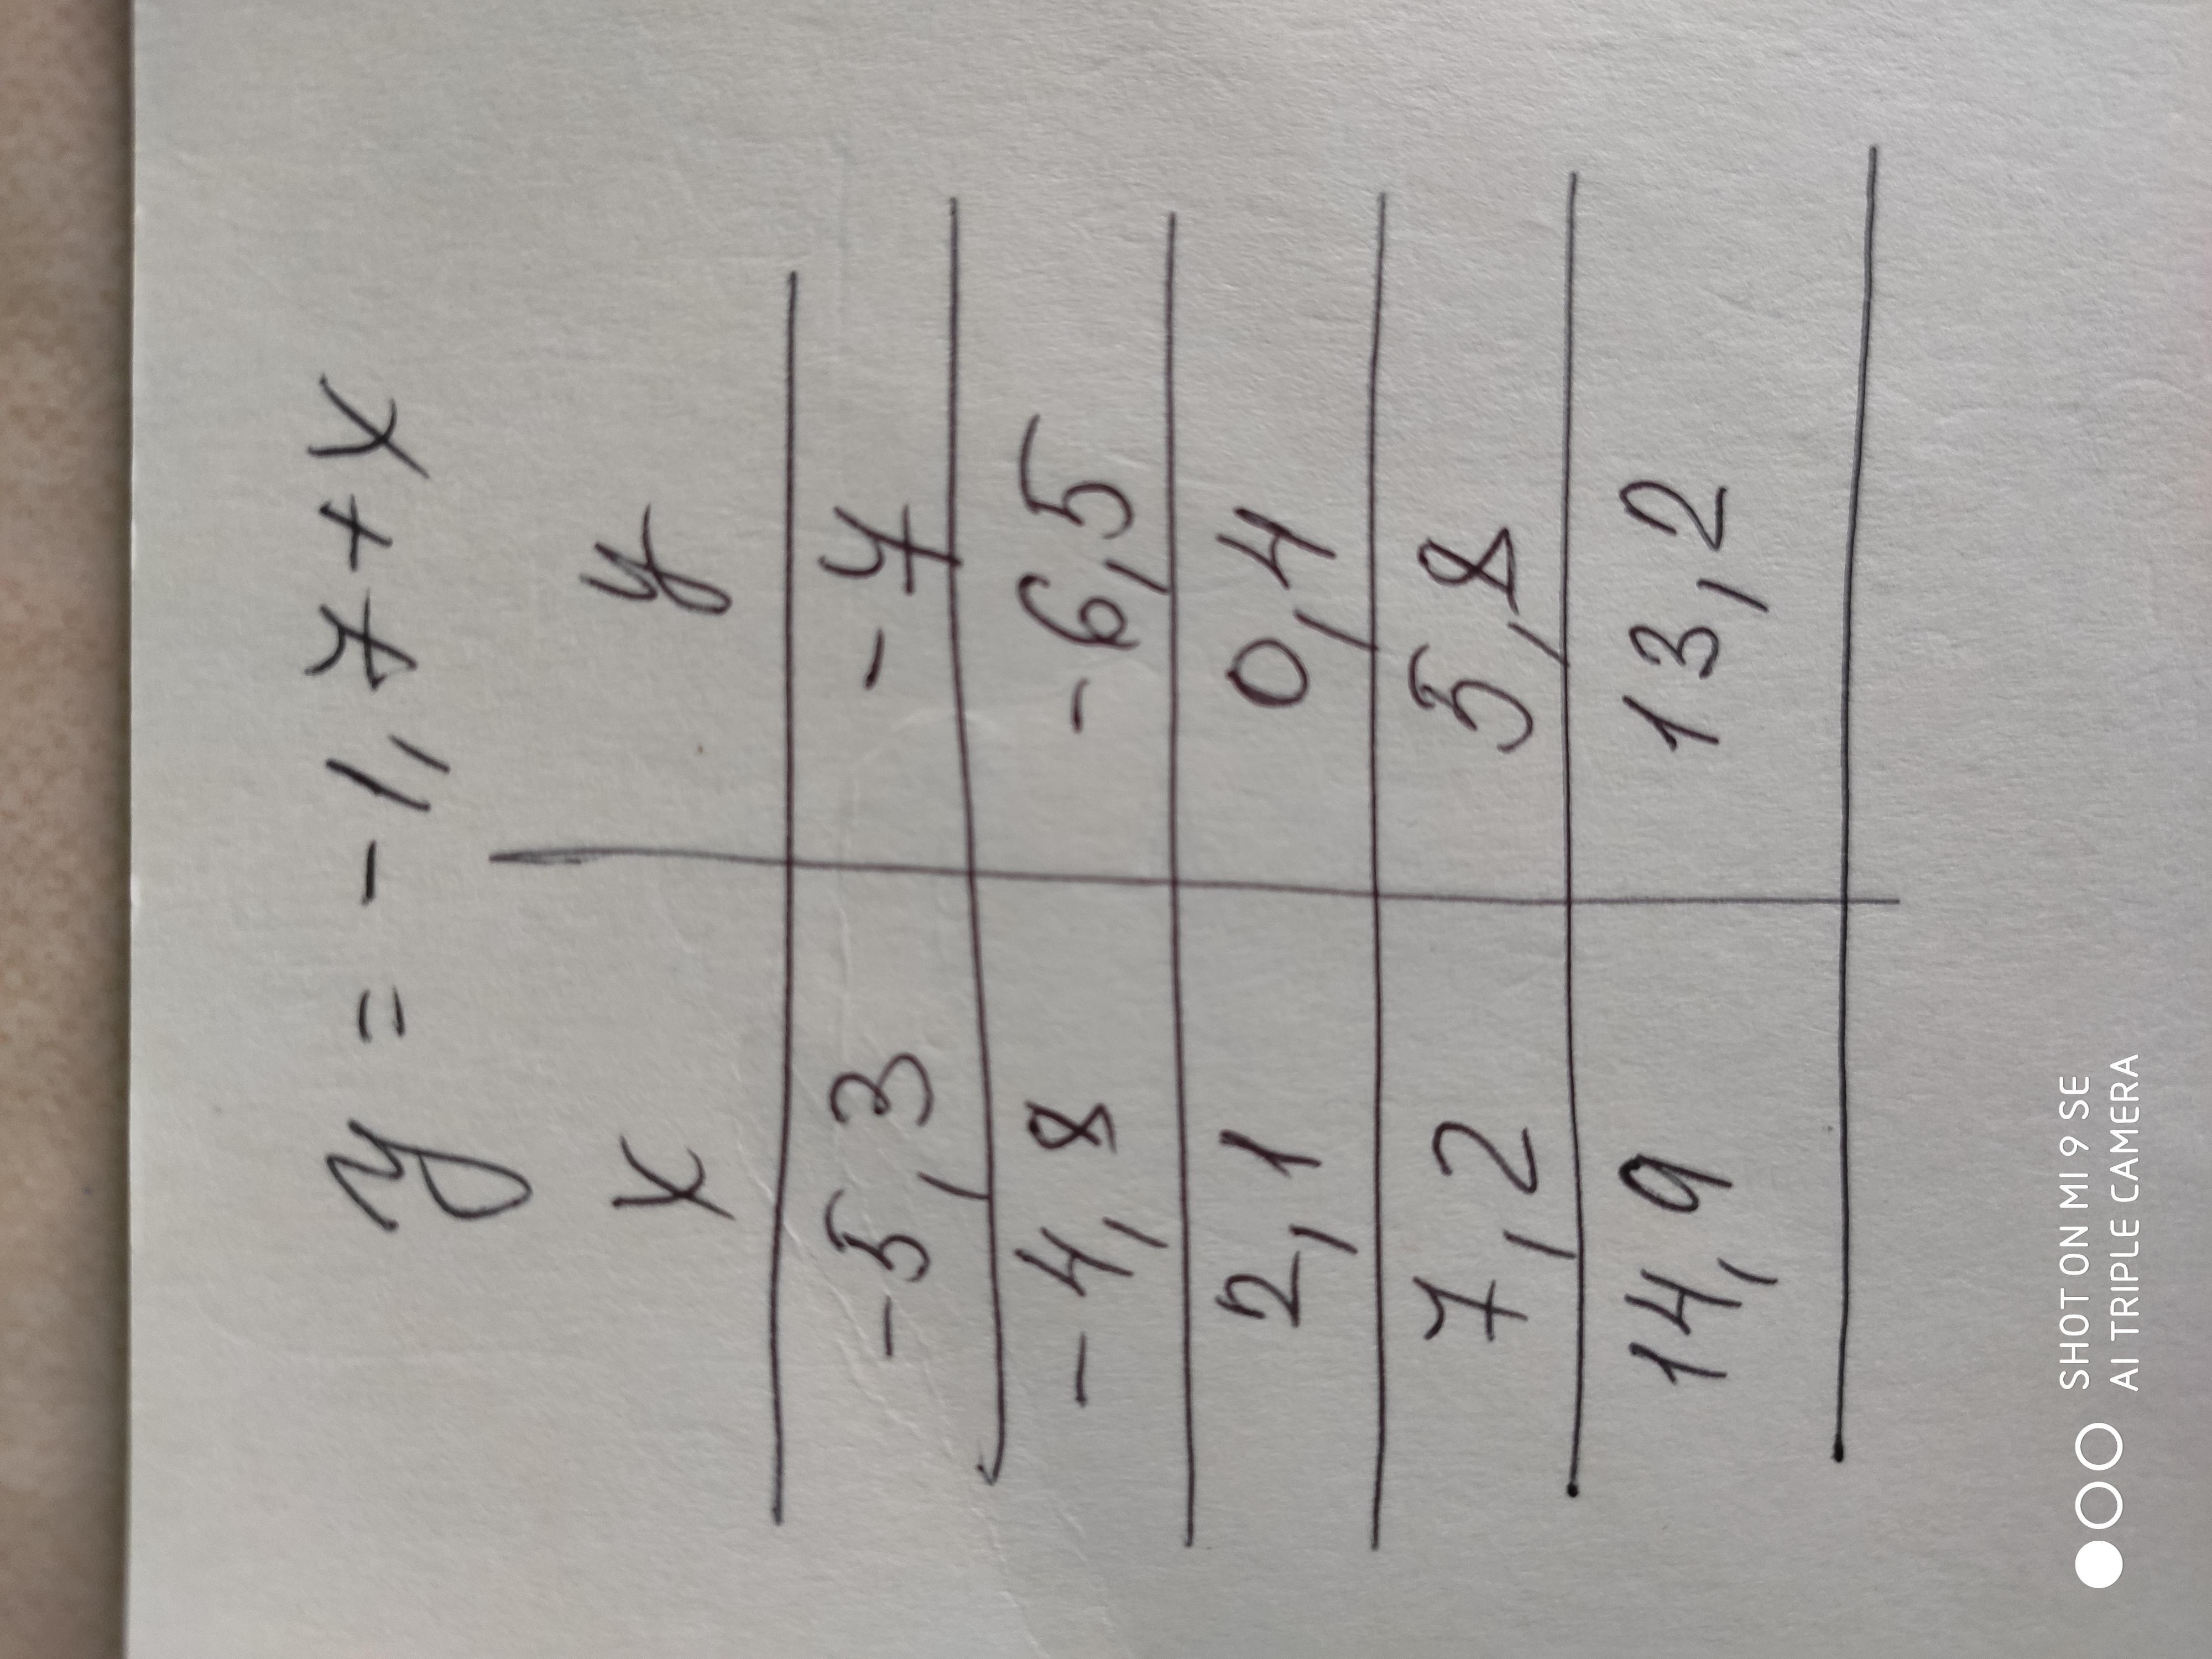 y = -1,7+x
x y
-5,3 -7
-4,8 -6,5
2,1 0,4
7,2 5,8
14,9 13,2
SHOT ON MI 9 SE
AI TRIPLE CAMERA